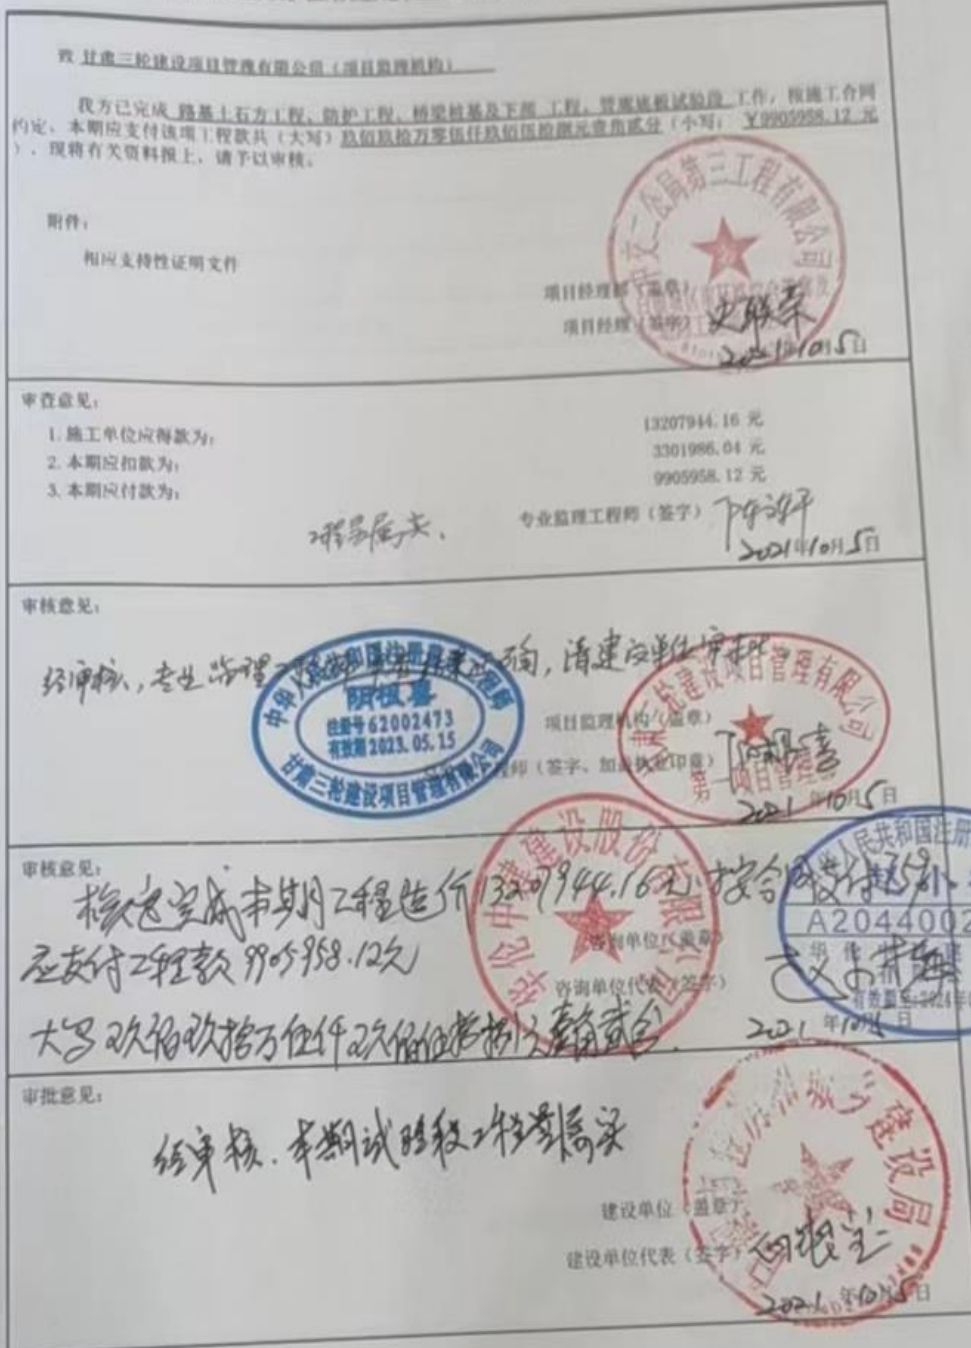 致 甘肃三轮建设项目管理有限公司（项目监理机构）
我方已完成 路基土石方工程、防护工程、桥梁桩基及下部 工程、管廊底板试验段 工作，按施工合同
约定，本期应支付该项工程款共（大写）玖佰玖拾万零伍仟玖佰伍拾捌元壹角贰分（小写：￥9905958.12 元
），现将有关资料报上，请予以审核。
附件：
相应支持性证明文件
中交二公局第三工程有限公司
项目经理部（盖章）
项目经理（签字）史联荣
2021年10月5日
审查意见：
1. 施工单位应得款为： 13207944.16 元
2. 本期应扣款为： 3301986.04 元
3. 本期应付款为： 9905958.12 元
工程量属实、
专业监理工程师（签字）
2021年10月5日
审核意见：
经审核，专业监理 正确，请建设单位审批。
中华人民共和国注册监理工程师
阴极喜
注册号 62002473
有效期 2023.05.15
甘肃三轮建设项目管理有限公司
项目监理机构（盖章）
三轮建设项目管理有限公司
第一项目管理部
师（签字、加盖执业印章）
2021年10月5日
审核意见：
核定完成本期工程造价13207944.16元，按合同支付75%，
应支付工程款9905958.12元
大写玖佰玖拾万伍仟玖佰伍拾捌元壹角贰分。
华伦中建建设股份有限公司
咨询单位（盖章）
咨询单位代表（签字）
人民共和国注册
A2044002
有效期至:2024年
2021年10月5日
审批意见：
经审核、本期试验段工程量属实
建设单位（盖章）
建设局
建设单位代表（签字）
2021年10月5日